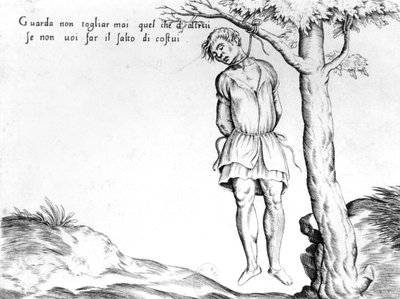 Guarda non togliar mai quel che d altrui
se non uoi far il salto di costui